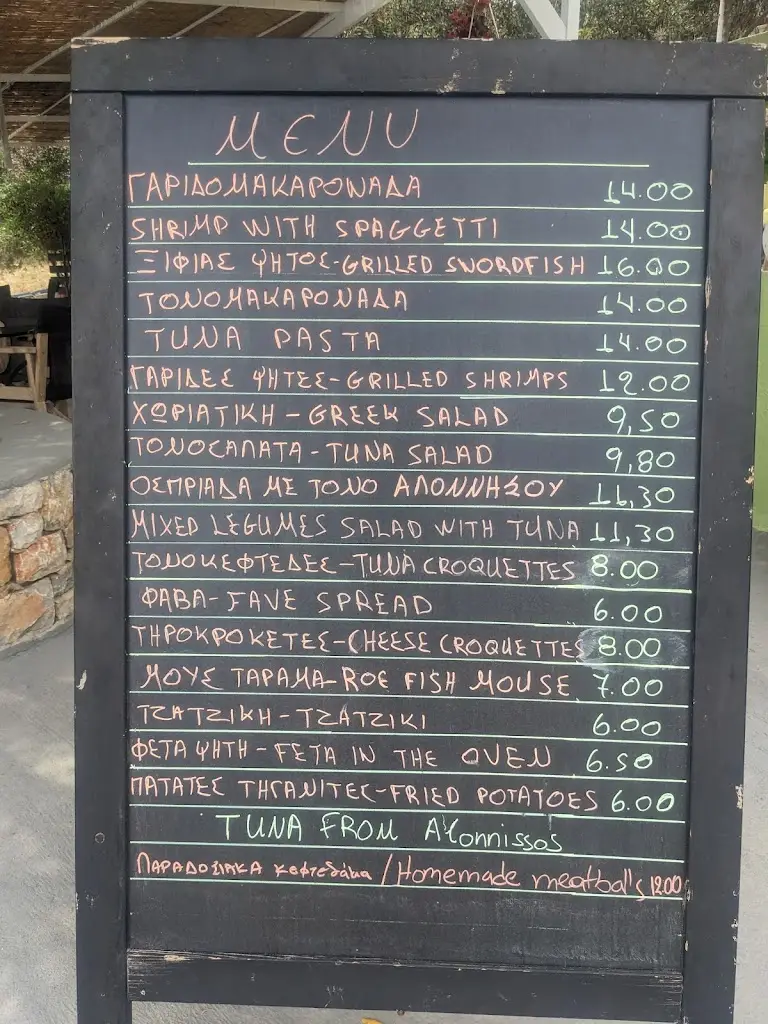 MENU
ΓΑΡΙΔΟΜΑΚΑΡΟΝΑΔΑ 14.00
SHRIMP WITH SPAGGETTI 14.00
ΞΙΦΙΑΣ ΨΗΤΟΣ-GRILLED SWORDFISH 16.00
ΤΟΝΟΜΑΚΑΡΟΝΑΔΑ 14.00
TUNA PASTA 14.00
ΓΑΡΙΔΕΣ ΨΗΤΕΣ-GRILLED SHRIMPS 12.00
ΧΩΡΙΑΤΙΚΗ-GREEK SALAD 9,50
ΤΟΝΟΣΑΛΑΤΑ-TUNA SALAD 9,80
ΟΣΠΡΙΑΔΑ ΜΕ ΤΟΝΟ ΑΛΟΝΝΗΣΟΥ 11,30
MIXED LEGUMES SALAD WITH TUNA 11,30
ΤΟΝΟΚΕΦΤΕΔΕΣ-TUNA CROQUETTES 8.00
ΦΑΒΑ-FAVE SPREAD 6.00
ΤΗΡΟΚΡΟΚΕΤΕΣ-CHEESE CROQUETTES 8.00
ΜΟΥΣ ΤΑΡΑΜΑ-ROE FISH MOUSE 7.00
ΤΖΑΤΖΙΚΗ-TZATZIKI 6.00
ΦΕΤΑ ΨΗΤΗ-FETA IN THE OVEN 6.50
ΠΑΤΑΤΕΣ ΤΗΓΑΝΙΤΕΣ-FRIED POTATOES 6.00
TUNA FROM Alonnissos
ΠΑΡΑΔΟΣΙΑΚΑ κεφτεδάκια/Homemade meatball's 12.00